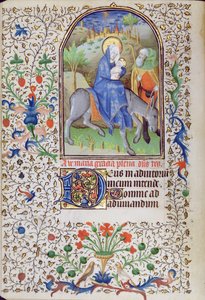 Aue maria gracia plena dns tec
Deus in adiutori
um meum intende.
Domine ad
adiuuandum